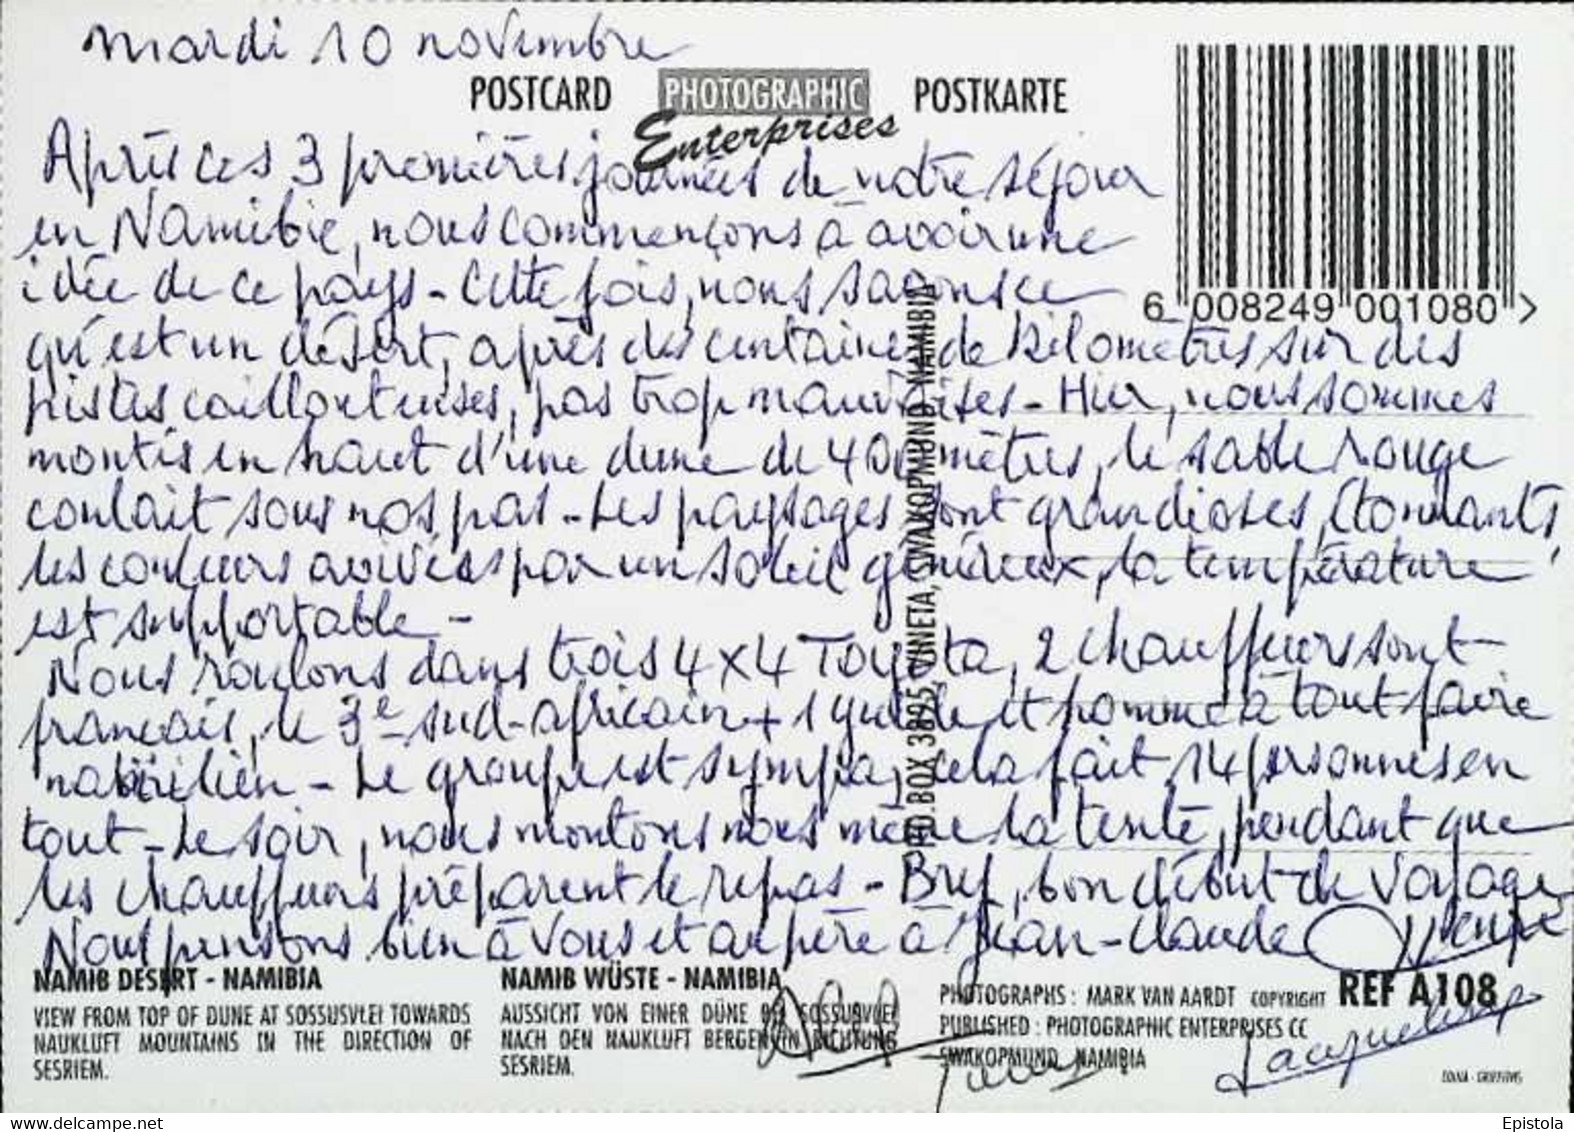 mardi 10 novembre
POSTCARD PHOTOGRAPHIC Enterprises POSTKARTE
Après ces 3 premières journées de notre séjour
en Namibie, nous commençons à avoir une
idée de ce pays - Cette fois, nous savons ce
qu'est un désert, après des centaines de kilomètres sur des
pistes caillouteuses, pas trop mauvaises - Hier, nous sommes
montés en haut d'une dune de 400 mètres, le sable rouge
coulait sous nos pas - Les paysages sont grandioses, étonnants,
les couleurs avivées par un soleil généreux, la température
est supportable -
Nous roulons dans trois 4x4 Toyota, 2 chauffeurs sont
français, le 3e sud-africain + 1 guide et homme à tout faire
namibien - Le groupe est sympa, cela fait 14 personnes en
tout - Le soir, nous montons nous même la tente, pendant que
les chauffeurs préparent le repas - Bref, bon début de voyage
Nous pensons bien à vous et au père à Jean-Claude
6 008249 001080 >
P.O. BOX 3895, VINETA, SWAKOPMUND, NAMIBIA
NAMIB DESERT - NAMIBIA
VIEW FROM TOP OF DUNE AT SOSSUSVLEI TOWARDS
NAUKLUFT MOUNTAINS IN THE DIRECTION OF
SESRIEM.
NAMIB WÜSTE - NAMIBIA
AUSSICHT VON EINER DÜNE BEI SOSSUSVLEI
NACH DEN NAUKLUFT BERGEN IN RICHTUNG
SESRIEM.
PHOTOGRAPHS : MARK VAN AARDT COPYRIGHT REF A108
PUBLISHED : PHOTOGRAPHIC ENTERPRISES CC
SWAKOPMUND, NAMIBIA
Jacqueline
Epistola